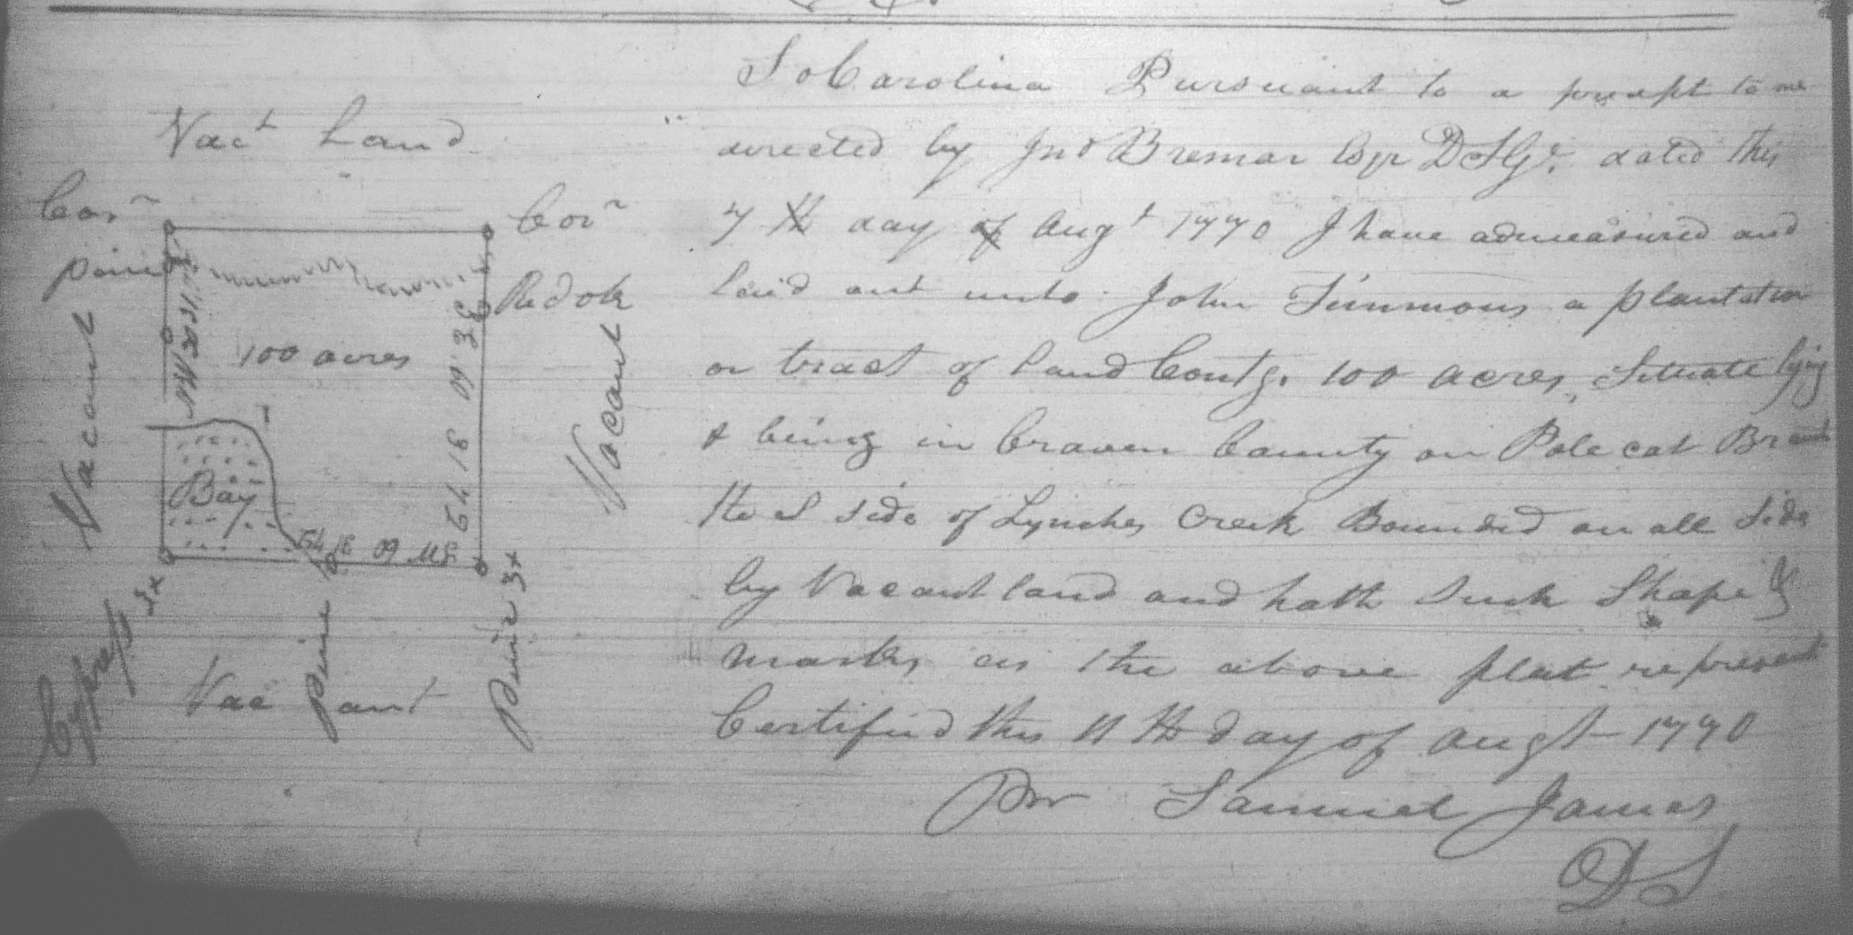 So Carolina Pursuant to a precept to me
directed by Jno Bremar Esqr DSGr. dated this
7 th day of Augt 1770 I have admeasured and
laid out unto John Timmons a plantation
or tract of land Contg. 100 acres, Situate lying
& being in Craven County on Pole cat Br
the S side of Lynches Creek Bounded on all Side
by Vacant land and hath Such Shape &
marks, as the above plat represent
Certified this 11 th day of Augt 1770
Pr Samuel James
DS
Vact Land
Corn
Corn
pine
Red ok
Vacant
100 acres
Vacant
Bay
SW 60
Cypress 3x
Vac ant
Pine
Pine 3x